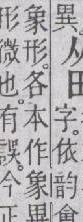 異。从田字。依韵會
象形。各本作象異
形微也。有誤。今正